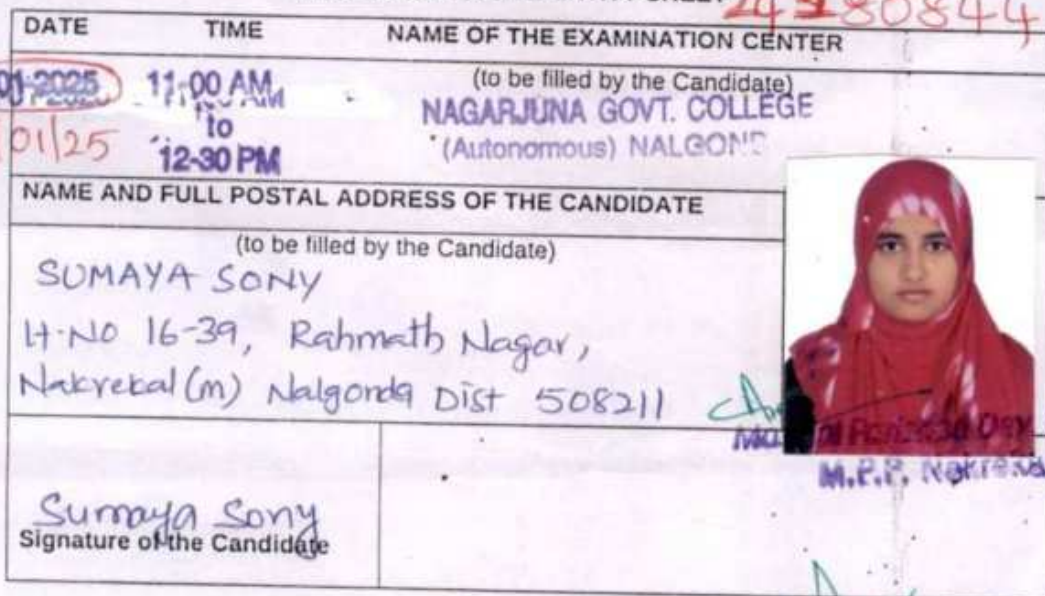 SHEET
80844
DATE TIME NAME OF THE EXAMINATION CENTER
01-2025 11-00 AM (to be filled by the Candidate)
to NAGARJUNA GOVT. COLLEGE
01/25 12-30 PM (Autonomous) NALGOND
NAME AND FULL POSTAL ADDRESS OF THE CANDIDATE
(to be filled by the Candidate)
SUMAYA SONY
H-NO 16-39, Rahmath Nagar,
Nakrekal (m) Nalgonda Dist 508211
M.P.P. Nakrekal
Sumaya Sony
Signature of the Candidate